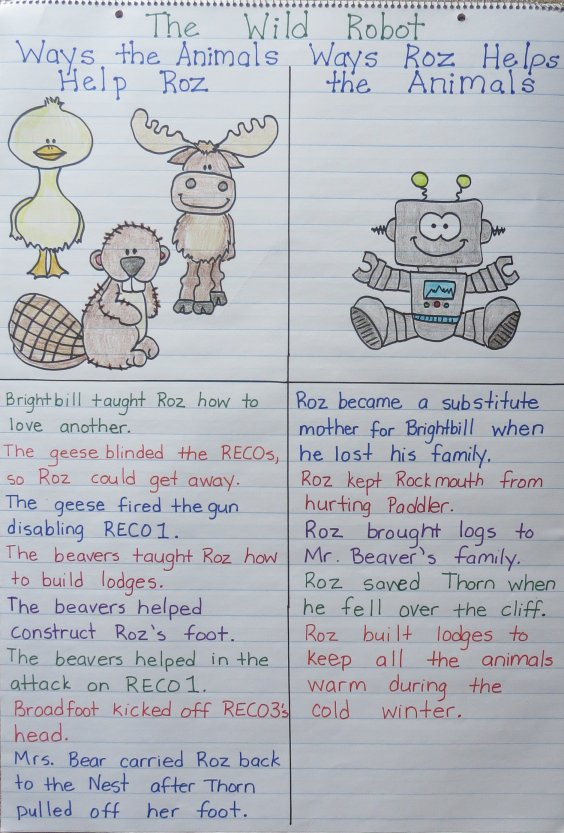 The Wild Robot
Ways the Animals
Help Roz
Ways Roz Helps
the Animals
Brightbill taught Roz how to
love another.
The geese blinded the RECOs,
so Roz could get away.
The geese fired the gun
disabling RECO 1.
The beavers taught Roz how
to build lodges.
The beavers helped
construct Roz's foot.
The beavers helped in the
attack on RECO 1.
Broadfoot kicked off RECO3's
head.
Mrs. Bear carried Roz back
to the Nest after Thorn
pulled off her foot.
Roz became a substitute
mother for Brightbill when
he lost his family.
Roz kept Rockmouth from
hurting Paddler.
Roz brought logs to
Mr. Beaver's family.
Roz saved Thorn when
he fell over the cliff.
Roz built lodges to
keep all the animals
warm during the
cold winter.